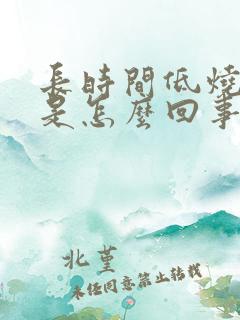 長時間低燒
是怎麼回事
北堇
未任同意禁止转载